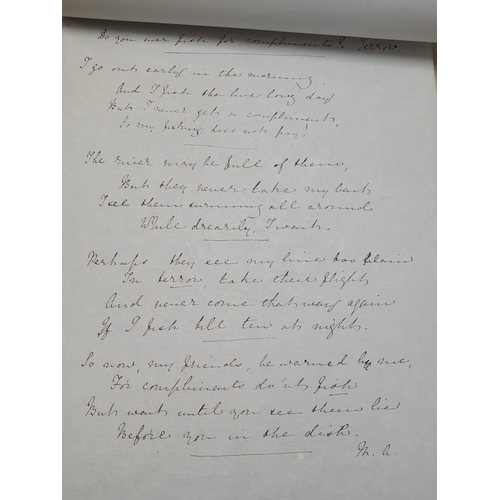 Do you ever fish for compliments? Terror
I go out early in the morning.
And I fish the live long day
But I never get a compliment,
So my fishing does not pay!
The river may be full of them,
But they never take my bait
I see them swimming all around
While drearily, I wait.
Perhaps they see my line too plain
In terror, take their flight
And never come that way again
If I fish till ten at night.
So now, my friends, be warned by me,
For compliments do n't fish
But wait until you see them lie
Before you in the dish.
M. A.